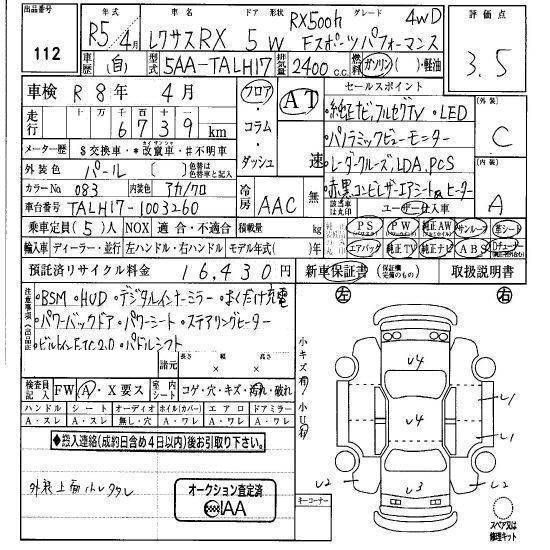 出品番号 112
年式 R5年4月
車名 レクサスRX
ドア 形状 5 W
RX500h グレード 4WD
Fスポーツパフォーマンス
評価点 3.5
車歴 (自)
型式 5AA-TALH17
排気量 2400 c.c.
燃料 ガソリン・軽油
車検 R8年 4月
走行 十万 千百十 6739 km
フロア・コラム・ダッシュ
AT 速
セールスポイント
・純正ナビ,フルセグTV ・LED
・パノラミックビューモニター
・レーダークルーズ,LDA,PCS
・赤黒コンビレザーエアシート&ヒーター
外装 C
内装 A
メーター歴 $交換車・*改竄車・#不明車
外装色 パール [ ] 色替は色替車と記入
カラーNo 083 内装色 アカ/クロ
冷房 AAC
無
該当車は丸印 ユーザー仕入車
車台番号 TALH17-1003260
乗車定員(5)人 NOX 適合・不適合 積載量 kg
PS PW 純正AW サンルーフ 革シート
輸入車 ディーラー・並行 左ハンドル・右ハンドル モデル年式( )年
エアバッグ 純正TV 純正ナビ ABS
預託済リサイクル料金 16,430円
新車保証書 (保証継続のもの) 取扱説明書
注意事項
・BSM ・HUD ・デジタルインナーミラー ・おくだけ充電
・パワーバックドア ・パワーシート ・ステアリングヒーター
・ビルトインETC2.0 ・パドルシフト
諸元 長さ × 幅 × 高さ
左 右
小キズ有 小凹有
検査員記入 FW A・X要ス 室内シート コゲ・穴・キズ・汚れ・破れ
ハンドル シート オーディオ ホイル(カバー) エアロ ドアミラー
A・スレ A・スレ 無し・穴 A・ワレ A・ワレ A・ワレ
◆搬入連絡(成約日含め4日以内)後お引取り下さい。
外装上面ハレクタレ
オークション査定済
IAA
キーコーナー
U4
U4
U3
U1
U1
U2
U2
スペア又は修理キット